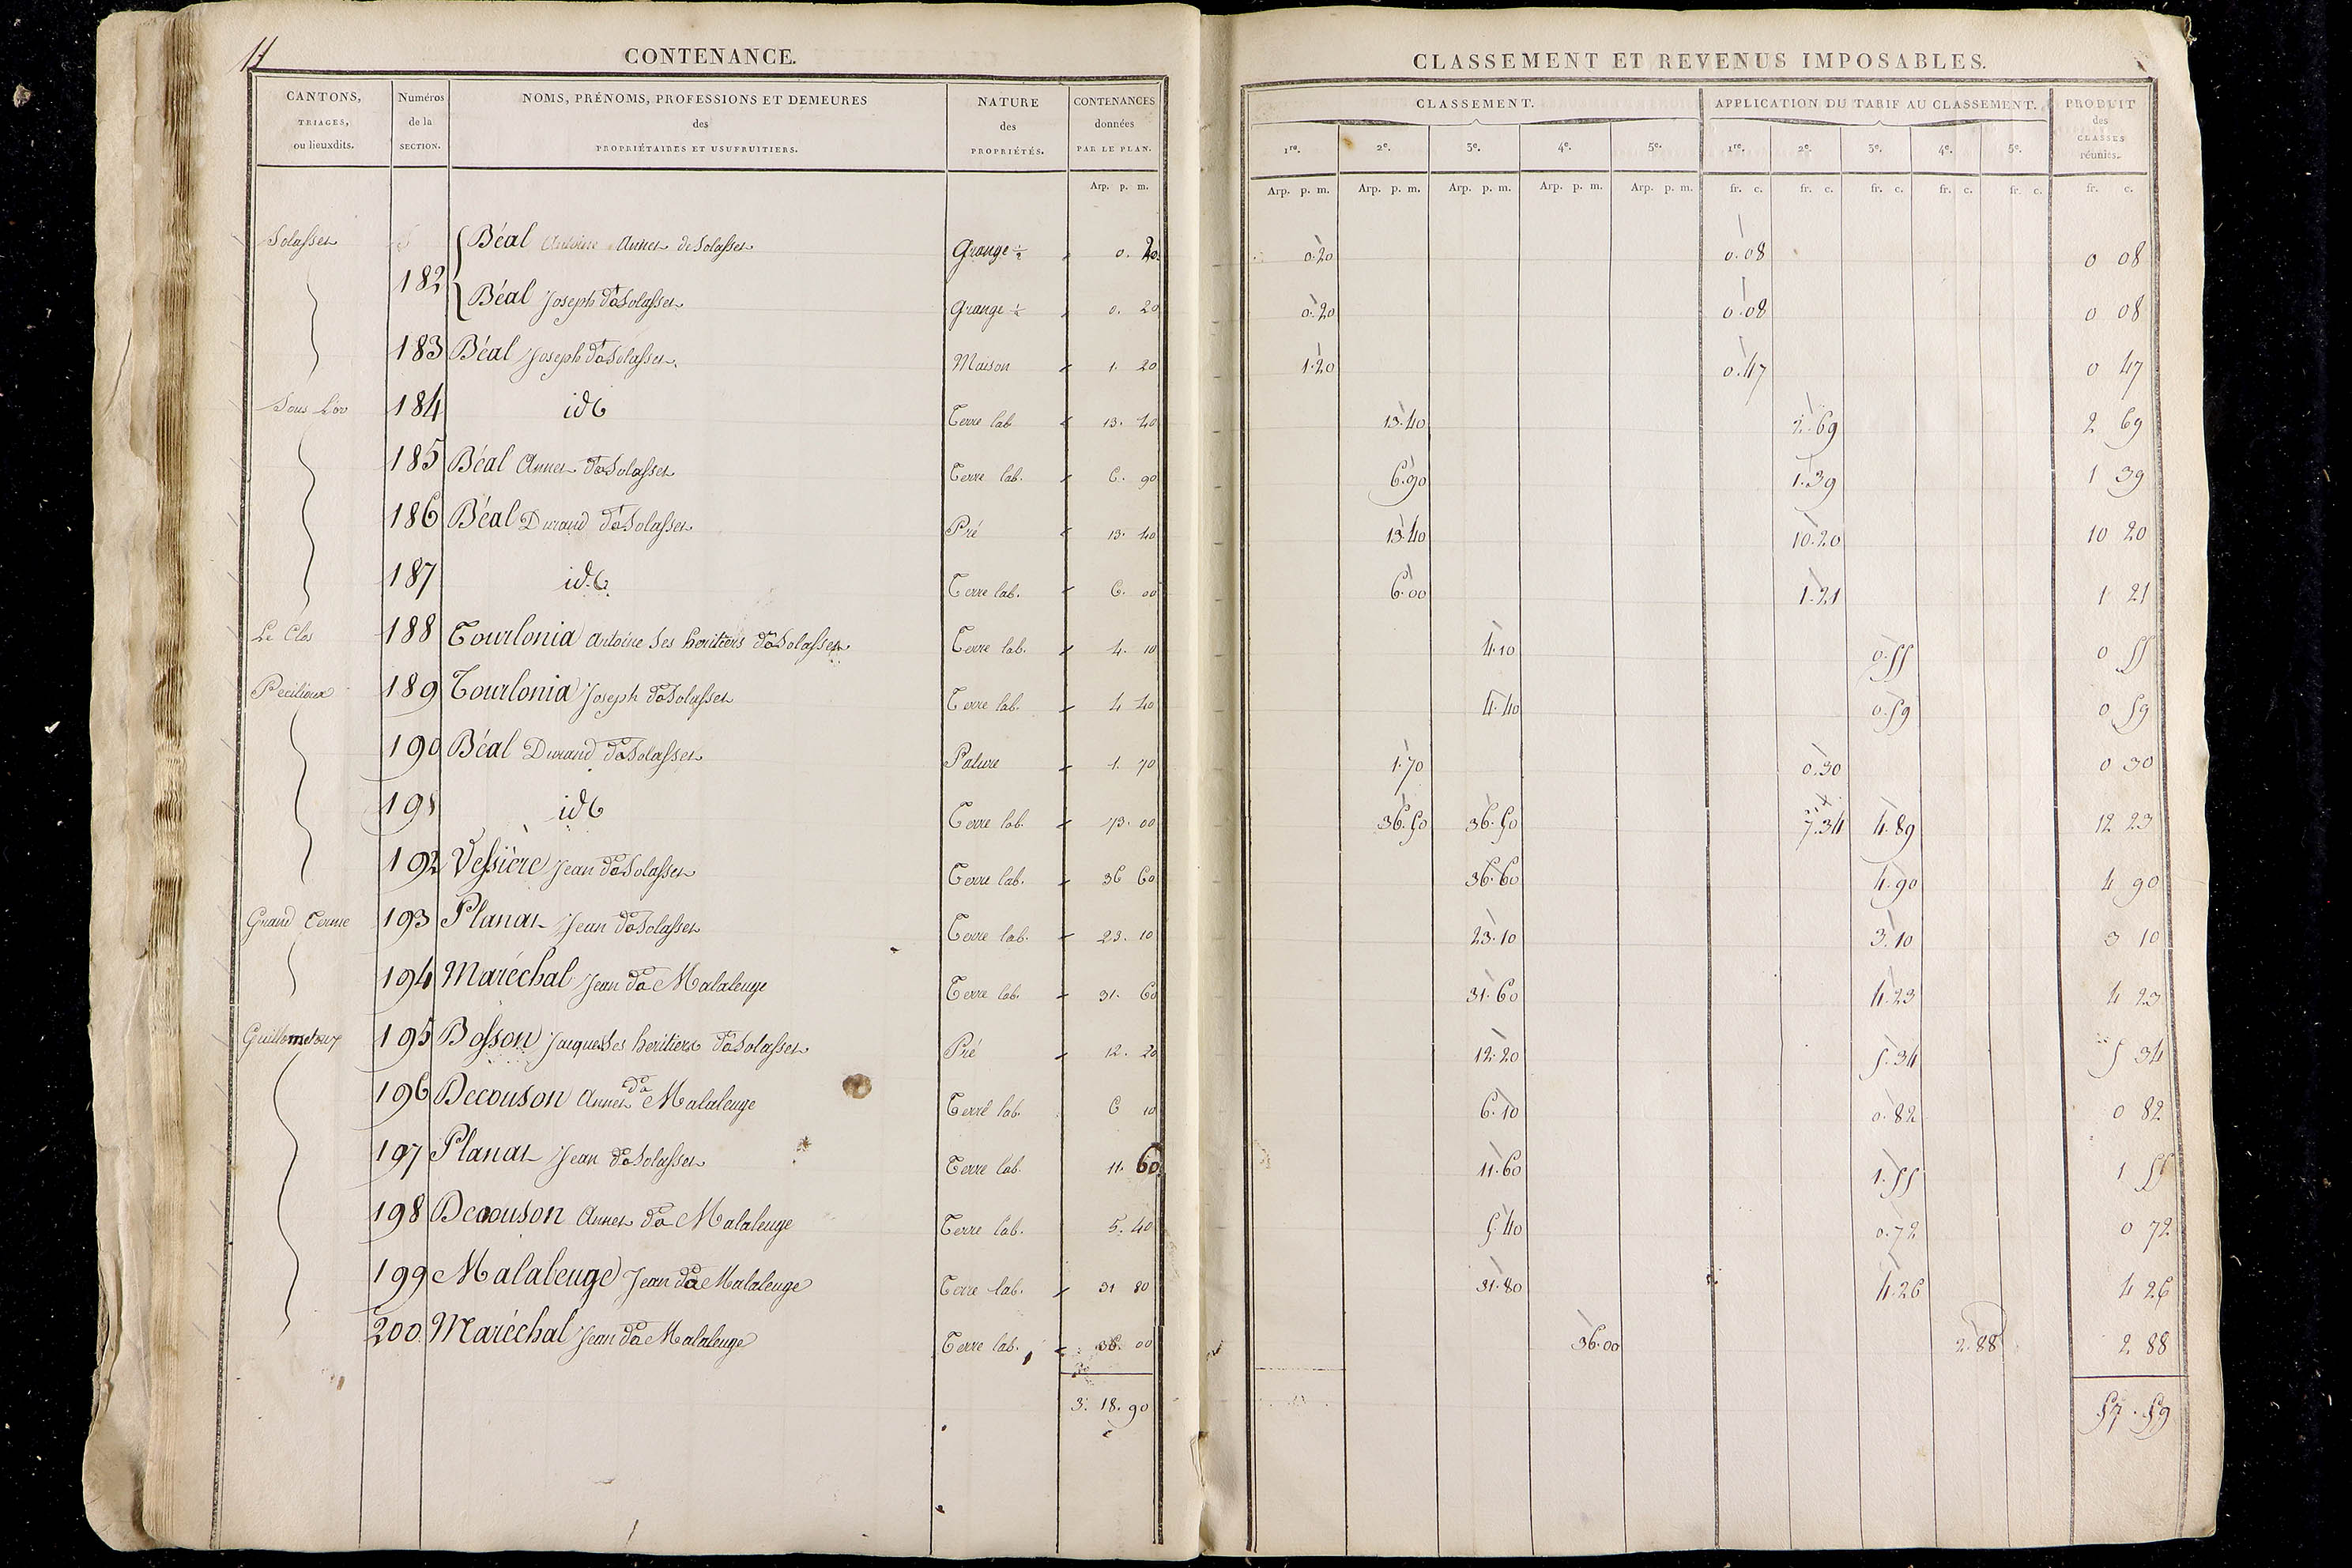 11
CONTENANCE.
CANTONS, TRIAGES, ou lieuxdits.
Numéros de la SECTION.
NOMS, PRÉNOMS, PROFESSIONS ET DEMEURES des PROPRIÉTAIRES ET USUFRUITIERS.
NATURE des PROPRIÉTÉS.
CONTENANCES données PAR LE PLAN.
Arp. p. m.
Solasset Béal Antoine Annet de Solasset Grange ½ 0. 20
182 Béal Joseph do Solasset Grange ½ 0. 20
183 Béal Joseph do Solasset Maison 1. 20
Sous L'or 184 id Terre lab 13. 40
185 Béal Annet do Solasset Terre lab. 6. 90
186 Béal Durand do Solasset Pré 13. 40
187 id. Terre lab. 6. 00
Le Clos 188 Tourlonia Antoine Ses heritiers do Solasset Terre lab. 4. 10
189 Tourlonia Joseph do Solasset Terre lab. 4 40
190 Béal Durand do Solasset Pature 1. 70
191 id Terre lab. 73. 00
192 Vessière Jean do Solasset Terre lab. 36 60
Grand Terme 193 Planat Jean do Solasset Terre lab. 23. 10
194 Maréchal Jean do Malaleuge Terre lab. 31. 60
195 Bosson Jacques Ses heritiers do Solasset Pré 12. 20
196 Decouson Annet do Malaleuge Terre lab. 6 10
197 Planat Jean do Solasset Terre lab. 11. 60
198 Decouson Annet do Malaleuge Terre lab. 5. 40
199 Malaleuge Jean do Malaleuge Terre lab. 31 80
200. Maréchal Jean do Malaleuge Terre lab. 36. 00
3. 18. 90
CLASSEMENT ET REVENUS IMPOSABLES.
CLASSEMENT. APPLICATION DU TARIF AU CLASSEMENT. PRODUIT des CLASSES réunies.
1re. 2e. 3e. 4e. 5e. 1re. 2e. 3e. 4e. 5e.
Arp. p. m. Arp. p. m. Arp. p. m. Arp. p. m. Arp. p. m. fr. c. fr. c. fr. c. fr. c. fr. c. fr. c.
0.20 0.08 0 08
0.20 0.08 0 08
1.20 0.47 0 47
13.40 2.69 2 69
6.90 1.39 1 39
13.40 10.20 10 20
6.00 1.21 1 21
4.10 0.55 0 55
4.40 0.59 0 59
1.70 0.30 0 30
36.50 36.50 7.34 4.89 12 23
36.60 4.90 4 90
23.10 3.10 3 10
31.60 4.23 4 23
12.20 5.34 5 34
6.10 0.82 0 82
11.60 1.55 1 55
5.40 0.72 0 72
31.80 4.26 4 26
36.00 2.88 2 88
57.59